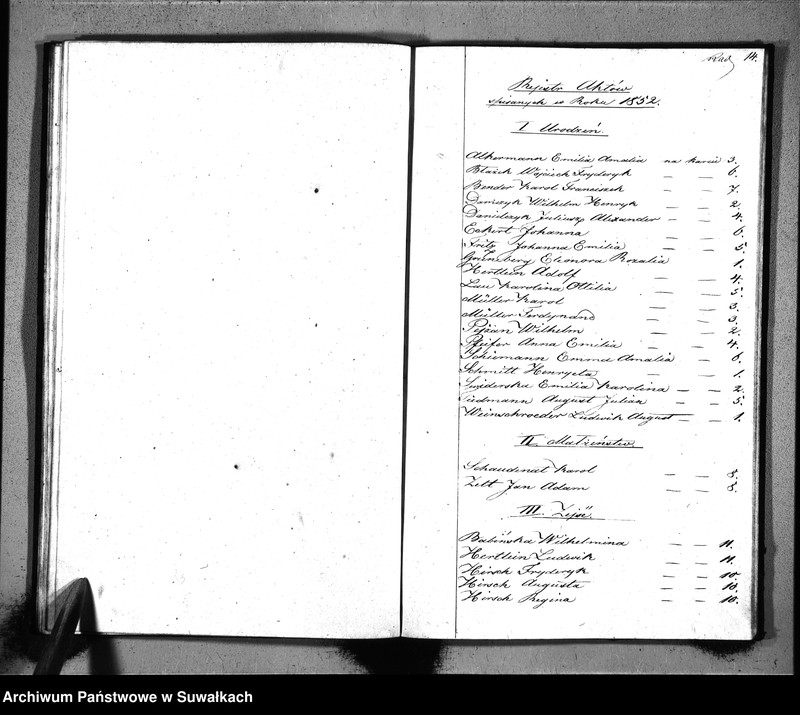 14.
Rejestr Aktów
spisanych w Roku 1852.
I Urodzeń.
Alkermann Emilia Amalia na karcie 3.
Błażek Wojciech Fryderyk — — 6.
Bender Karol Franciszek — — 7.
Danczyk Wilhelm Henryk — — 2.
Danilczyk Juliusz Alexander — — 4.
Eckert Johanna — — 6.
Fritz Johanna Emilia — — 5.
Grünzberg Eleonora Rozalia — 1.
Hertlein Adolf — — 4.
Lau Karolina Ottilia — — 5.
Müller Karol — — 3.
Müller Ferdynand — — 3.
Wilhelm — — 2.
Pfeifer Anna Emilia — — 4.
Schiemann Emma Amalia — 6.
Schmitt Henryeta — — 1.
Swiderska Emilia Karolina — — 2.
Tiedmann August Julian — — 5.
Weinschroeder Ludwik August — — 1.
II. Małżeństw.
Schaudenat Karol — — 8.
Zelt Jan Adam — — 8.
III. Zejść.
Babińska Wilhelmina — — 11.
Hertlein Ludwik — — 11.
Hirsch Fryderyk — — 10.
Hirsch Augusta — — 10.
Hirsch Regina — — 10.
Archiwum Państwowe w Suwałkach